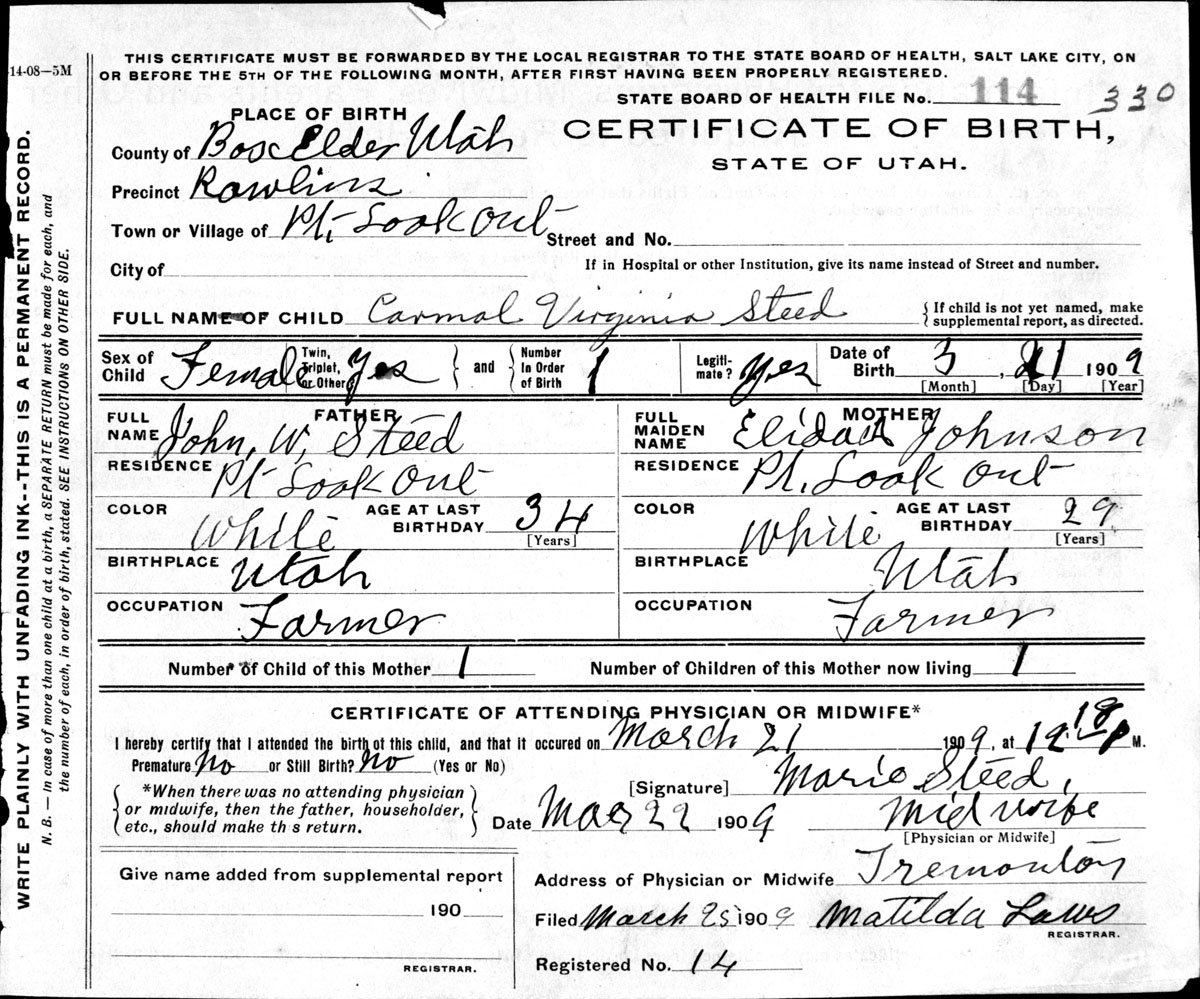 14-08—5M
THIS CERTIFICATE MUST BE FORWARDED BY THE LOCAL REGISTRAR TO THE STATE BOARD OF HEALTH, SALT LAKE CITY, ON
OR BEFORE THE 5TH OF THE FOLLOWING MONTH, AFTER FIRST HAVING BEEN PROPERLY REGISTERED.
STATE BOARD OF HEALTH FILE No. 114 330
PLACE OF BIRTH
CERTIFICATE OF BIRTH,
STATE OF UTAH.
County of Box Elder Utah
Precinct Rawlins
Town or Village of Pt, Look Out
Street and No.
City of
If in Hospital or other Institution, give its name instead of Street and number.
FULL NAME OF CHILD Carmal Virginia Steed
{If child is not yet named, make
supplemental report, as directed.
Sex of Child Female
Twin, Triplet, or Other? Yes
and
Number In Order of Birth 1
Legiti-mate? Yes
Date of Birth 3, 21 1909
[Month] [Day] [Year]
FATHER
FULL NAME John, W, Steed
RESIDENCE Pt Look Out
COLOR White
AGE AT LAST BIRTHDAY 34
[Years]
BIRTHPLACE Utah
OCCUPATION Farmer
MOTHER
FULL MAIDEN NAME Johnson
RESIDENCE Pt. Look Out
COLOR White
AGE AT LAST BIRTHDAY 29
[Years]
BIRTHPLACE Utah
OCCUPATION Farmer
Number of Child of this Mother 1
Number of Children of this Mother now living 1
CERTIFICATE OF ATTENDING PHYSICIAN OR MIDWIFE*
I hereby certify that I attended the birth of this child, and that it occured on March 21 1909, at 12 18 P M.
Premature No or Still Birth? No (Yes or No)
{*When there was no attending physician
or midwife, then the father, householder,
etc., should make this return.}
[Signature] Marie Steed,
Date Mar 22 1909 Midwife
[Physician or Midwife]
Give name added from supplemental report
190
REGISTRAR.
Address of Physician or Midwife Tremonton
Filed March 25 1909 Matilda Laws
REGISTRAR.
Registered No. 14
WRITE PLAINLY WITH UNFADING INK--THIS IS A PERMANENT RECORD.
N. B.— In case of more than one child at a birth, a SEPARATE RETURN must be made for each, and
the number of each, in order of birth, stated. SEE INSTRUCTIONS ON OTHER SIDE.